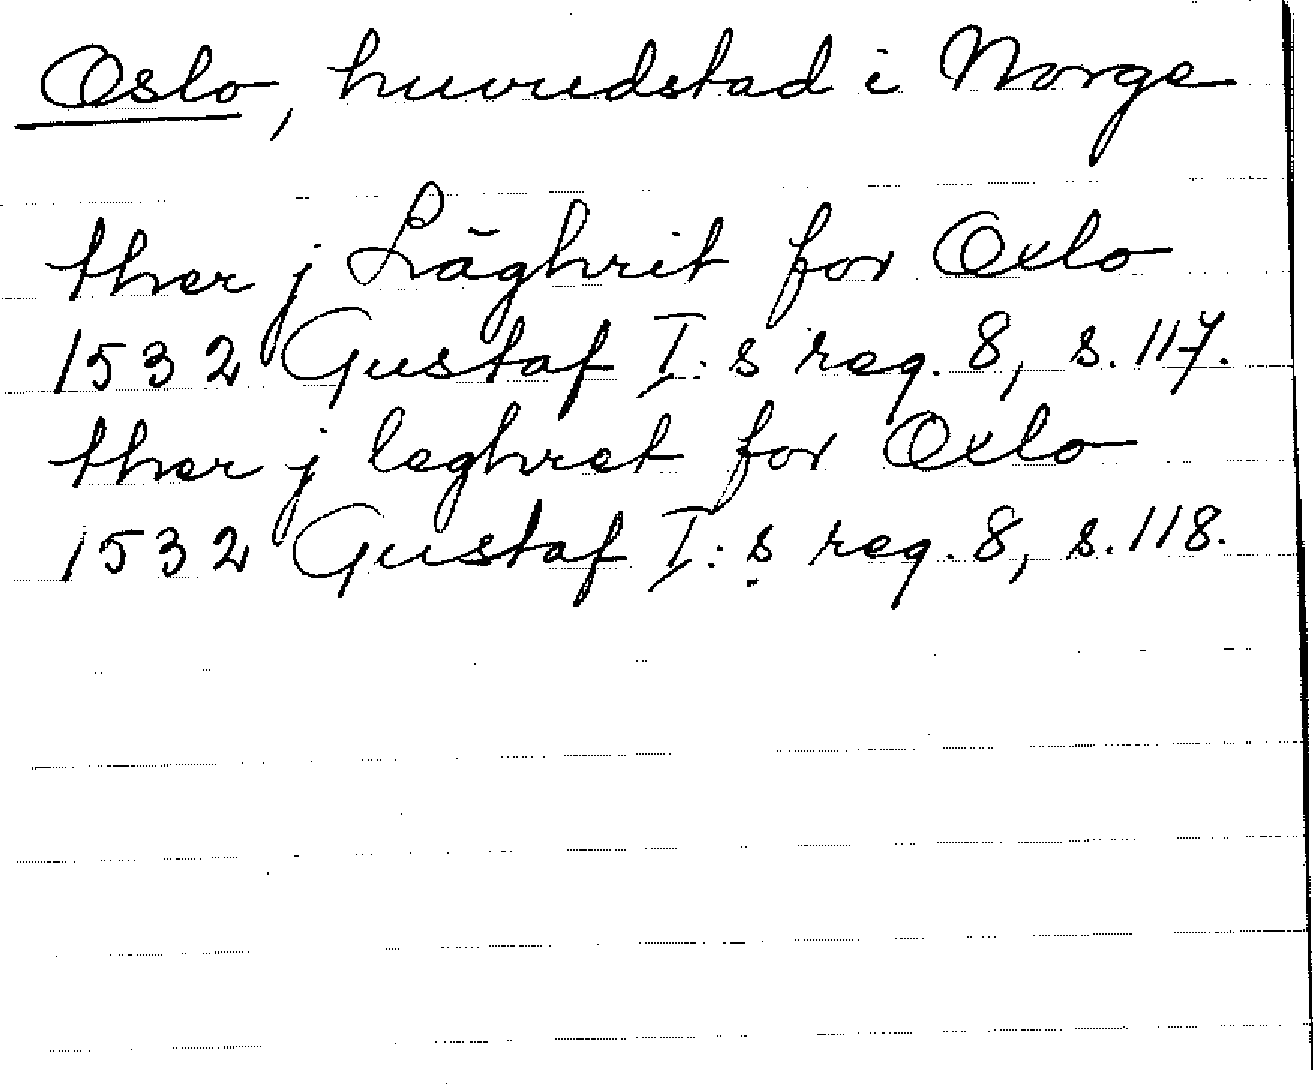 Oslo, huvudstad i Norge
ther j Läghrit for Oxlo
1532 Gustaf I:s reg. 8, s. 117.
ther j leghret for Oxlo
1532 Gustaf I:s reg. 8, s. 118.